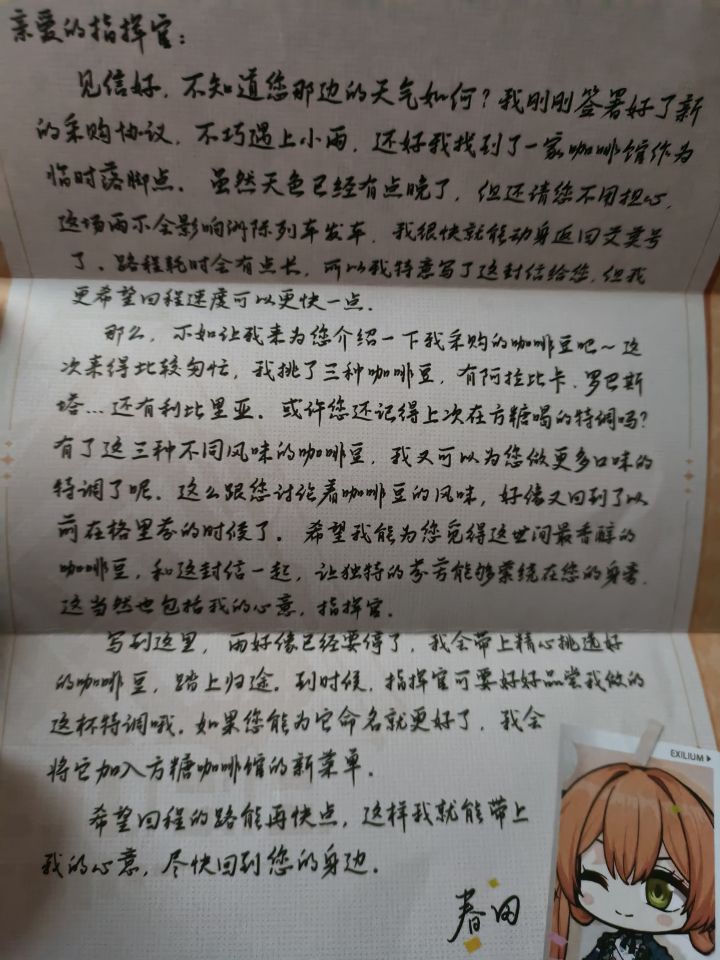 亲爱的指挥官：
见信好，不知道您那边的天气如何？我刚刚签署好了新
的采购协议，不巧遇上小雨，还好我找到了一家咖啡馆作为
临时落脚点。虽然天色已经有点晚了，但还请您不用担心，
这场雨不会影响洲际列车发车，我很快就能动身返回艾莫号
了。路程耗时会有点长，所以我特意写了这封信给您，但我
更希望回程速度可以更快一点。
那么，不如让我来为您介绍一下我采购的咖啡豆吧～这
次来得比较匆忙，我挑了三种咖啡豆，有阿拉比卡、罗巴斯
塔...还有利比里亚。或许您还记得上次在方糖喝的特调吗？
有了这三种不同风味的咖啡豆，我又可以为您做更多口味的
特调了呢。这么跟您讨论着咖啡豆的风味，好像又回到了以
前在格里芬的时候了。希望我能为您觅得这世间最香醇的
咖啡豆，和这封信一起，让独特的芬芳能够萦绕在您的身旁，
这当然也包括我的心意，指挥官。
写到这里，雨好像已经要停了，我会带上精心挑选好
的咖啡豆，踏上归途。到时候，指挥官可要好好品尝我做的
这杯特调哦。如果您能为它命名就更好了，我会
将它加入方糖咖啡馆的新菜单。
希望回程的路能再快点，这样我就能带上
我的心意，尽快回到您的身边。
春田
EXILIUM